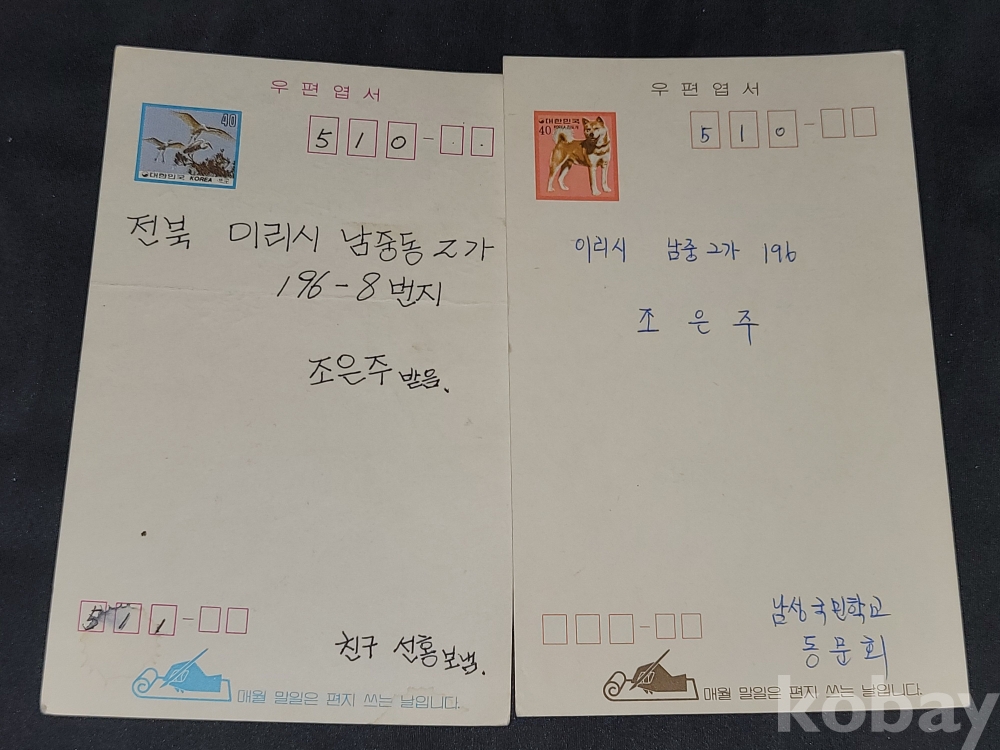 우편엽서
40
대한민국 KOREA
510-
전북 이리시 남중동 2가
196-8번지
조은주 받음.
511-
친구 선홍 보냄.
매월 말일은 편지 쓰는 날입니다.
우편엽서
대한민국
40
510-
이리시 남중 2가 196
조은주
남성국민학교
동문회
매월 말일은 편지 쓰는 날입니다.
kobay